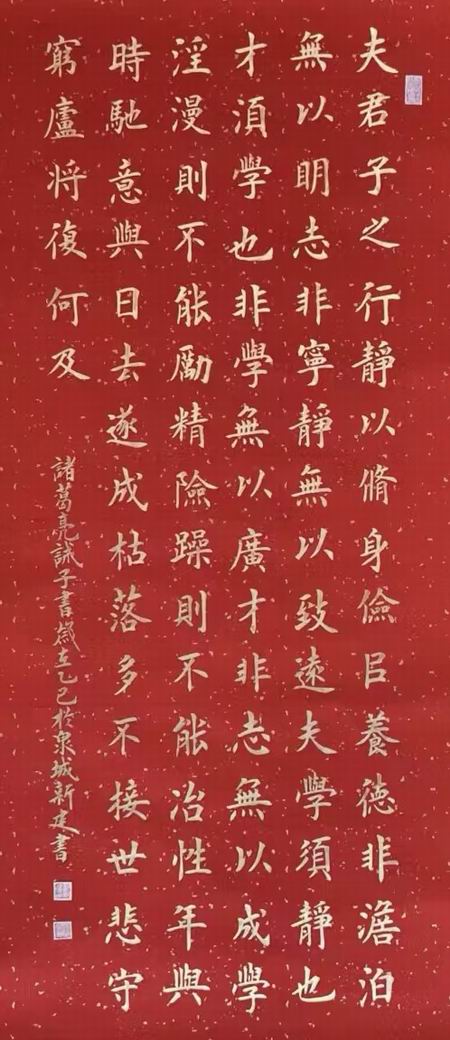 夫君子之行靜以脩身儉㠯養德非澹泊
無以明志非寧靜無以致遠夫學須靜也
才須學也非學無以廣才非志無以成學
淫漫則不能勵精險躁則不能冶性年與
時馳意與日去遂成枯落多不接世悲守
窮廬將復何及
諸葛亮誡子書歲在乙巳於泉城新建書